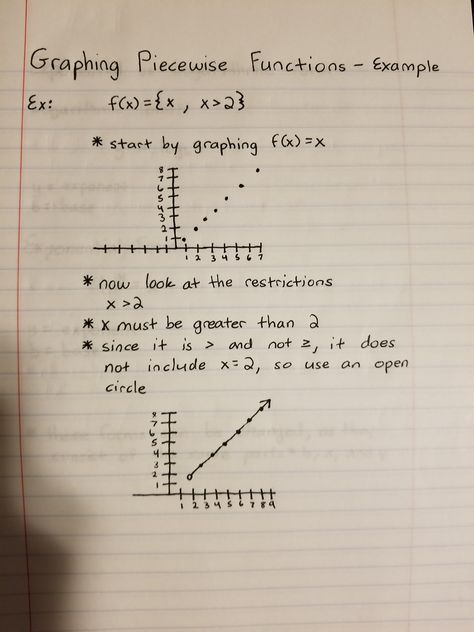 Graphing Piecewise Functions - Example
Ex: f(x) = {x , x>2}
* start by graphing f(x) = x
8
7
6
5
4
3
2
1
1 2 3 4 5 6 7
* now look at the restrictions
x > 2
* x must be greater than 2
* since it is > and not ≥, it does
not include x = 2, so use an open
circle
8
7
6
5
4
3
2
1
1 2 3 4 5 6 7 8 9